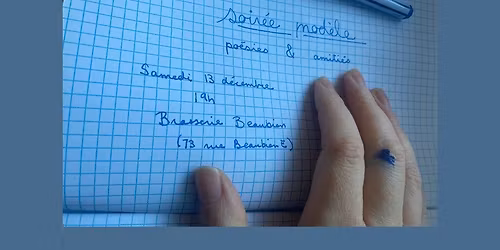 soirée modèle
poésies & amitiés
Samedi 13 décembre
19h
Brasserie Beaubien
(73 rue Beaubien E)